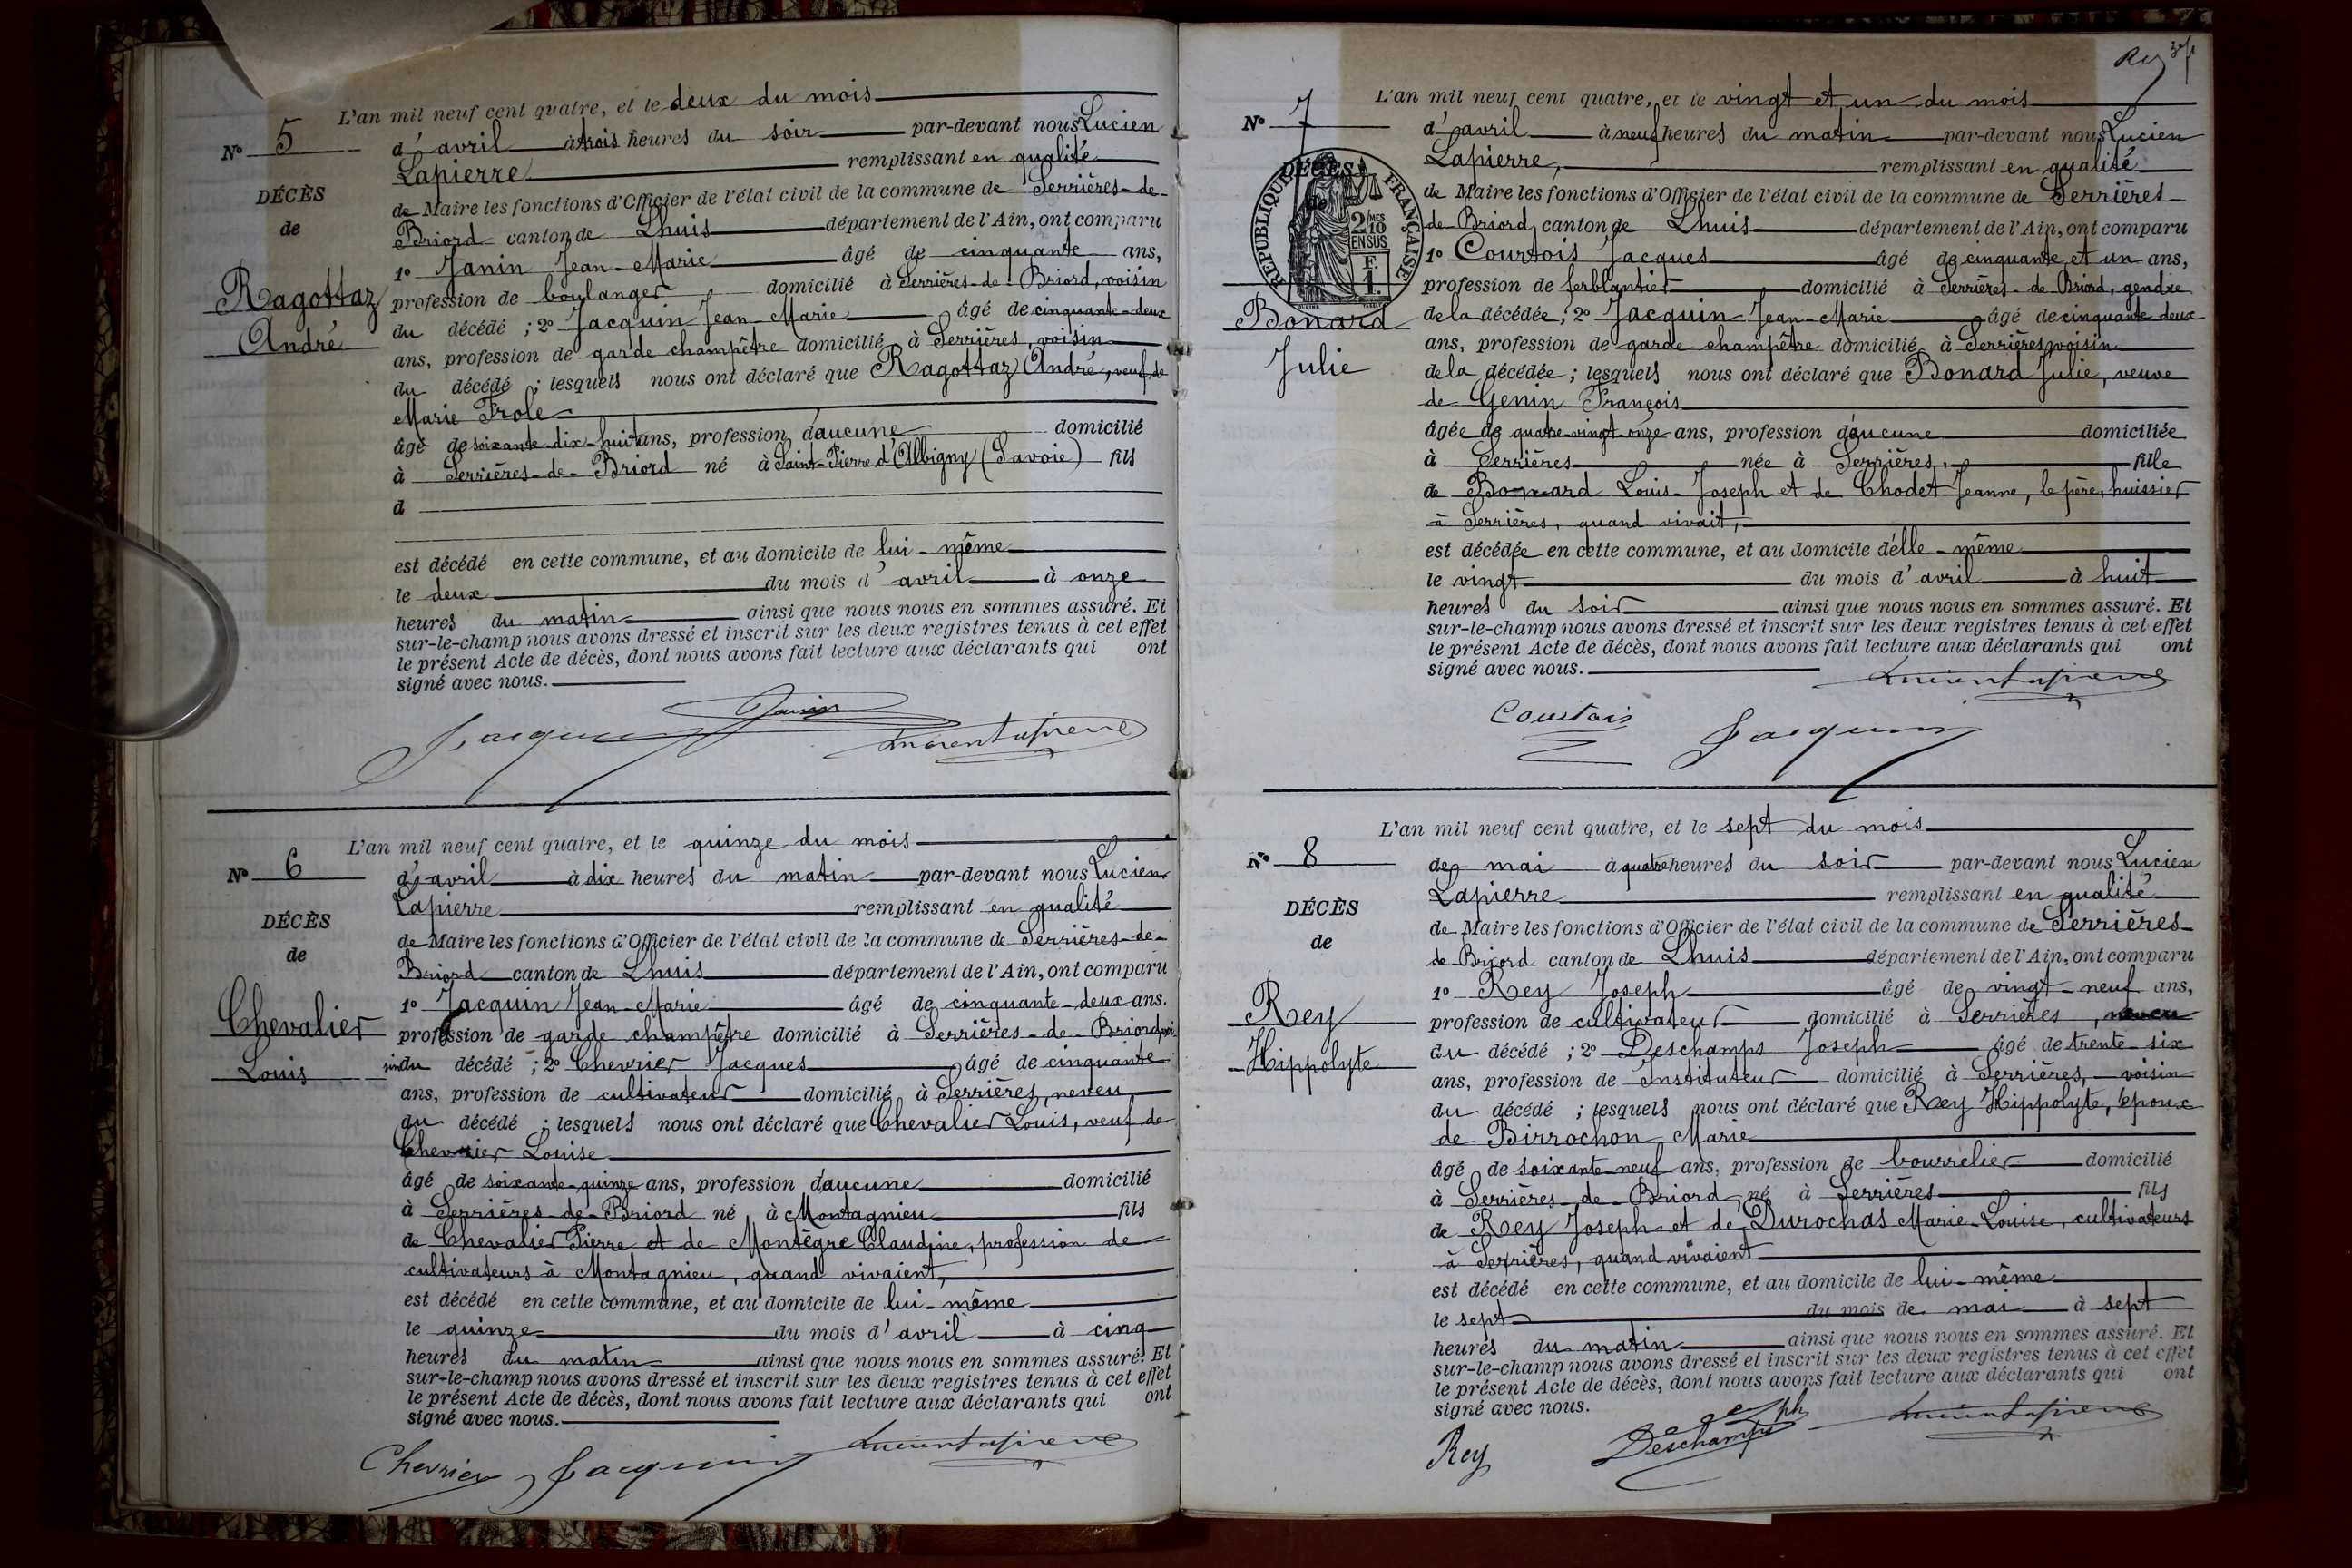 L'an mil neuf cent quatre, et le deux du mois
N° 5
d'avril à trois heures du soir par-devant nous Lucien
Lapierre remplissant en qualité
DÉCÈS
de Maire les fonctions d'Officier de l'état civil de la commune de Serrières-de-
de
Briord canton de Lhuis département de l'Ain, ont comparu
1° Janin Jean-Marie âgé de cinquante ans,
Ragottaz
profession de boulanger domicilié à Serrières-de-Briord, voisin
André
du décédé ; 2° Jacquin Jean-Marie âgé de cinquante-deux
ans, profession de garde champêtre domicilié à Serrières, voisin
du décédé ; lesquels nous ont déclaré que Ragottaz André, veuf de
Marie Frole
âgé de soixante-dix-huit ans, profession d'aucune domicilié
à Serrières-de-Briord né à Saint-Pierre d'Albigny (Savoie) fils
d
est décédé en cette commune, et au domicile de lui-même
le deux du mois d'avril à onze
heures du matin ainsi que nous nous en sommes assuré. Et
sur-le-champ nous avons dressé et inscrit sur les deux registres tenus à cet effet
le présent Acte de décès, dont nous avons fait lecture aux déclarants qui ont
signé avec nous.
Jacquin Janin Lucien Lapierre
L'an mil neuf cent quatre, et le quinze du mois
N° 6
d'avril à dix heures du matin par-devant nous Lucien
Lapierre remplissant en qualité
DÉCÈS
de Maire les fonctions d'Officier de l'état civil de la commune de Serrières-de-
de
Briord canton de Lhuis département de l'Ain, ont comparu
1° Jacquin Jean-Marie âgé de cinquante-deux ans.
Chevalier
profession de garde champêtre domicilié à Serrières-de-Briord, voi
Louis
sin du décédé ; 2° Chevrier Jacques âgé de cinquante
ans, profession de cultivateur domicilié à Serrières, neveu
du décédé ; lesquels nous ont déclaré que Chevalier Louis, veuf de
Chevrier Louise
âgé de soixante-quinze ans, profession d'aucune domicilié
à Serrières-de-Briord né à Montagnieu fils
de Chevalier Pierre et de Montègre Claudine, profession de
cultivateurs à Montagnieu, quand vivaient,
est décédé en cette commune, et au domicile de lui-même
le quinze du mois d'avril à cinq
heures du matin ainsi que nous nous en sommes assuré. Et
sur-le-champ nous avons dressé et inscrit sur les deux registres tenus à cet effet
le présent Acte de décès, dont nous avons fait lecture aux déclarants qui ont
signé avec nous.
Chevrier Jacquin Lucien Lapierre
Rey
L'an mil neuf cent quatre, et le vingt et un du mois
N° 7
d'avril à neuf heures du matin par-devant nous Lucien
Lapierre, remplissant en qualité
DÉCÈS
de Maire les fonctions d'Officier de l'état civil de la commune de Serrières-
de
RÉPUBLIQUE FRANÇAISE
2/10 MES EN SUS
F. 1.
de Briord, canton de Lhuis département de l'Ain, ont comparu
1° Courtois Jacques âgé de cinquante et un ans,
profession de ferblantier domicilié à Serrières-de Briord, gendre
Bonard
de la décédée ; 2° Jacquin Jean-Marie âgé de cinquante deux
Julie
ans, profession de garde champêtre domicilié à Serrières, voisin
de la décédée ; lesquels nous ont déclaré que Bonard Julie, veuve
de Genin François
âgée de quatre-vingt-onze ans, profession d'aucune domiciliée
à Serrières née à Serrières, fille
de Bonard Louis-Joseph et de Chodet Jeanne, le père, huissier
à Serrières, quand vivait,
est décédée en cette commune, et au domicile d'elle-même
le vingt du mois d'avril à huit
heures du soir ainsi que nous nous en sommes assuré. Et
sur-le-champ nous avons dressé et inscrit sur les deux registres tenus à cet effet
le présent Acte de décès, dont nous avons fait lecture aux déclarants qui ont
signé avec nous. Lucien Lapierre
Courtois Jacquin
L'an mil neuf cent quatre, et le sept du mois
N° 8
de mai à quatre heures du soir par-devant nous Lucien
Lapierre remplissant en qualité
DÉCÈS
de Maire les fonctions d'Officier de l'état civil de la commune de Serrières-
de
de Briord canton de Lhuis département de l'Ain, ont comparu
1° Rey Joseph âgé de vingt-neuf ans,
Rey
profession de cultivateur domicilié à Serrières, neveu
Hippolyte
du décédé ; 2° Deschamps Joseph âgé de trente-six
ans, profession de Instituteur domicilié à Serrières, voisin
du décédé ; lesquels nous ont déclaré que Rey Hippolyte, époux
de Birrochon Marie
âgé de soixante-neuf ans, profession de bourrelier domicilié
à Serrières-de-Briord, né à Serrières fils
de Rey Joseph et de Durochas Marie-Louise, cultivateurs
à Serrières, quand vivaient
est décédé en cette commune, et au domicile de lui-même
le sept du mois de mai à sept
heures du matin ainsi que nous nous en sommes assuré. Et
sur-le-champ nous avons dressé et inscrit sur les deux registres tenus à cet effet
le présent Acte de décès, dont nous avons fait lecture aux déclarants qui ont
signé avec nous.
Rey Deschamps Lucien Lapierre